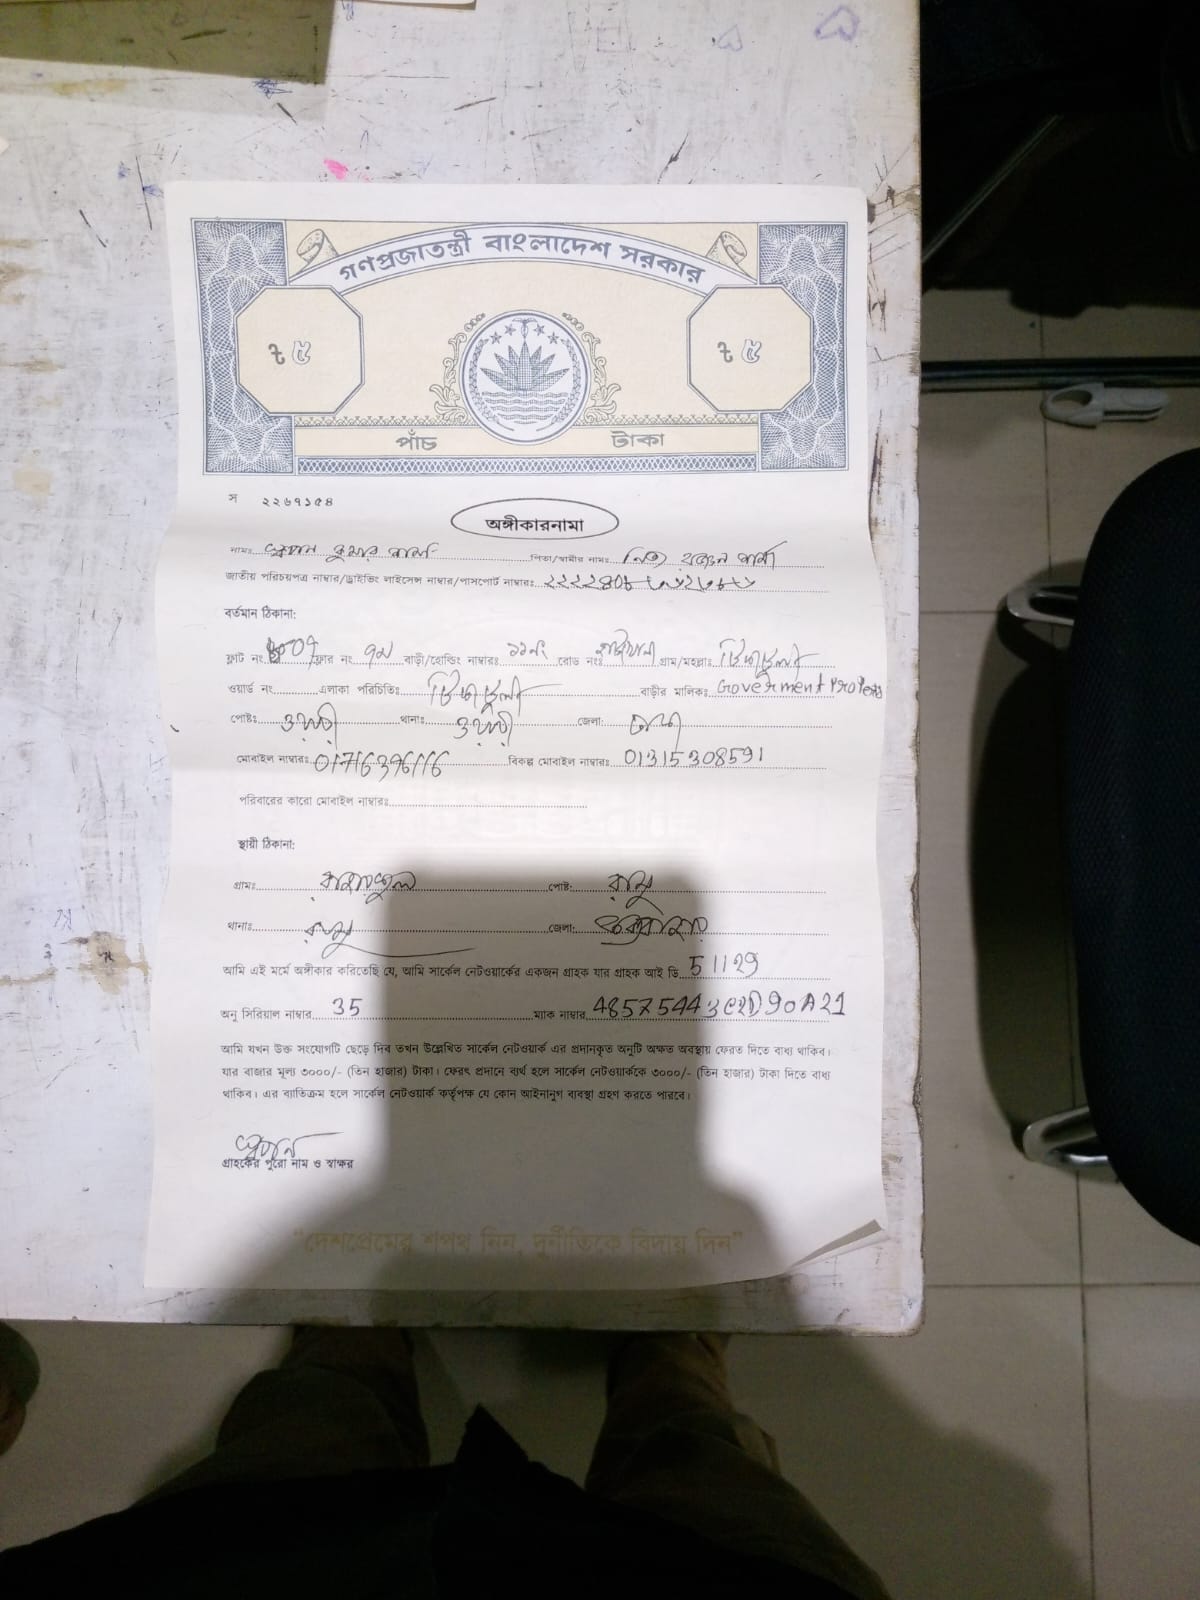 গণপ্রজাতন্ত্রী বাংলাদেশ সরকার
৳ ৫ ৳ ৫
পাঁচ টাকা
স ২২৬৭১৫৪
অঙ্গীকারনামা
নামঃ কুমার পিতা/স্বামীর নামঃ
জাতীয় পরিচয়পত্র নাম্বার/ড্রাইভিং লাইসেন্স নাম্বার/পাসপোর্ট নাম্বারঃ
বর্তমান ঠিকানা:
ফ্লাট নং ফ্লোর নং ৭ম বাড়ী/হোল্ডিং নাম্বারঃ ১১নং রোড নংঃ গ্রাম/মহল্লাঃ
ওয়ার্ড নং এলাকা পরিচিতিঃ বাড়ীর মালিকঃ Goverment
পোষ্টঃ ওয়ারী থানাঃ ওয়ারী জেলা: ঢাকা
মোবাইল নাম্বারঃ বিকল্প মোবাইল নাম্বারঃ 01315308591
পরিবারের কারো মোবাইল নাম্বারঃ
স্থায়ী ঠিকানা:
গ্রামঃ পোষ্ট: রামু
থানাঃ রামু জেলা: কক্সবাজার
আমি এই মর্মে অঙ্গীকার করিতেছি যে, আমি সার্কেল নেটওয়ার্কের একজন গ্রাহক যার গ্রাহক আই ডি 51129
অনু সিরিয়াল নাম্বার 35 ম্যাক নাম্বার
আমি যখন উক্ত সংযোগটি ছেড়ে দিব তখন উল্লেখিত সার্কেল নেটওয়ার্ক এর প্রদানকৃত অনুটি অক্ষত অবস্থায় ফেরত দিতে বাধ্য থাকিব।
যার বাজার মূল্য ৩০০০/- (তিন হাজার) টাকা। ফেরৎ প্রদানে ব্যর্থ হলে সার্কেল নেটওয়ার্ককে ৩০০০/- (তিন হাজার) টাকা দিতে বাধ্য
থাকিব। এর ব্যাতিক্রম হলে সার্কেল নেটওয়ার্ক কর্তৃপক্ষ যে কোন আইনানুগ ব্যবস্থা গ্রহণ করতে পারবে।
গ্রাহকের পুরো নাম ও স্বাক্ষর
"দেশপ্রেমের শপথ নিন, দুর্নীতিকে বিদায় দিন"